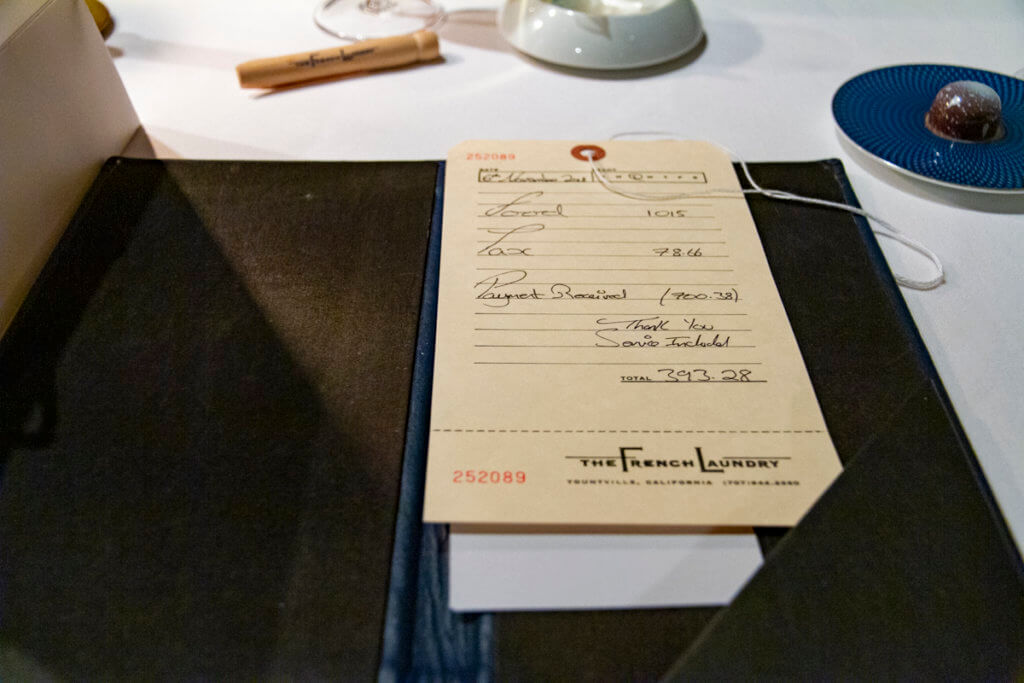 THE FRENCH LAUNDRY
252089
DATE
6th November
Food 1015
Tax 78.66
Payment Received (700.38)
Thank You
Service Included
TOTAL 393.28
THE FRENCH LAUNDRY
252089
YOUNTVILLE, CALIFORNIA (707)944-2380